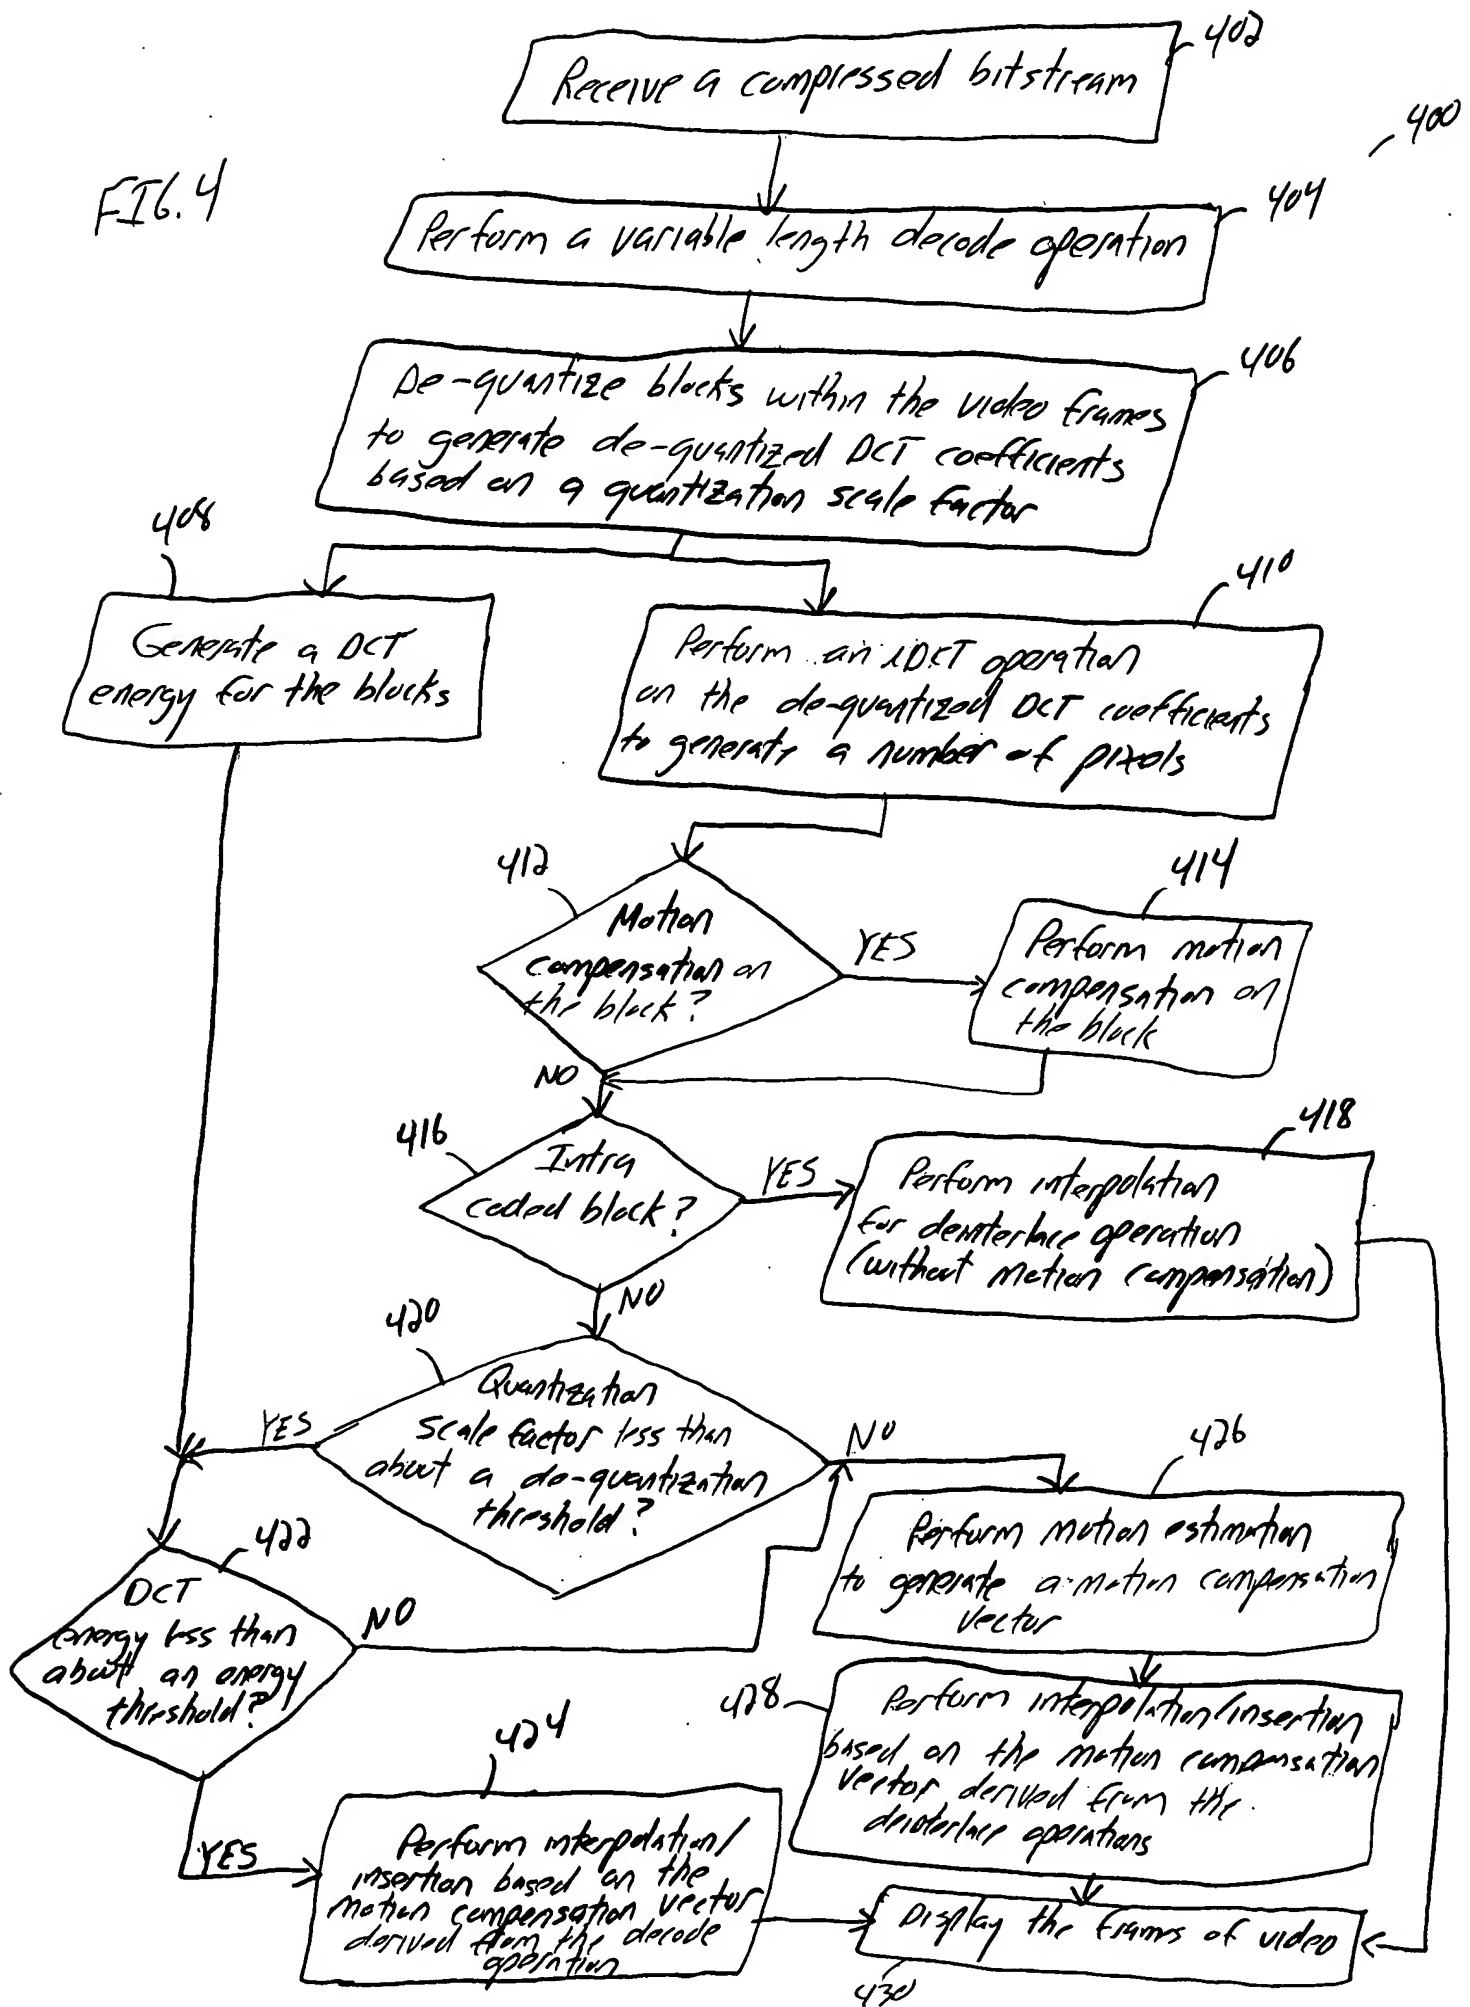 402
Receive a compressed bitstream
400
FIG. 4
404
Perform a variable length decode operation
406
De-quantize blocks within the video frames
to generate de-quantized DCT coefficients
based on a quantization scale factor
408
Generate a DCT
energy for the blocks
410
Perform an iDCT operation
on the de-quantized DCT coefficients
to generate a number of pixels
412
Motion
compensation on
the block?
YES
414
Perform motion
compensation on
the block
NO
416
Intra
coded block?
YES
418
Perform interpolation
for deinterlace operation
(without motion compensation)
NO
420
Quantization
scale factor less than
about a de-quantization
threshold?
YES
NO
426
Perform motion estimation
to generate a motion compensation
vector
422
DCT
energy less than
about an energy
threshold?
NO
428
Perform interpolation/insertion
based on the motion compensation
vector derived from the
deinterlace operations
YES
424
Perform interpolation/
insertion based on the
motion compensation vector
derived from the decode
operation
Display the frames of video
430